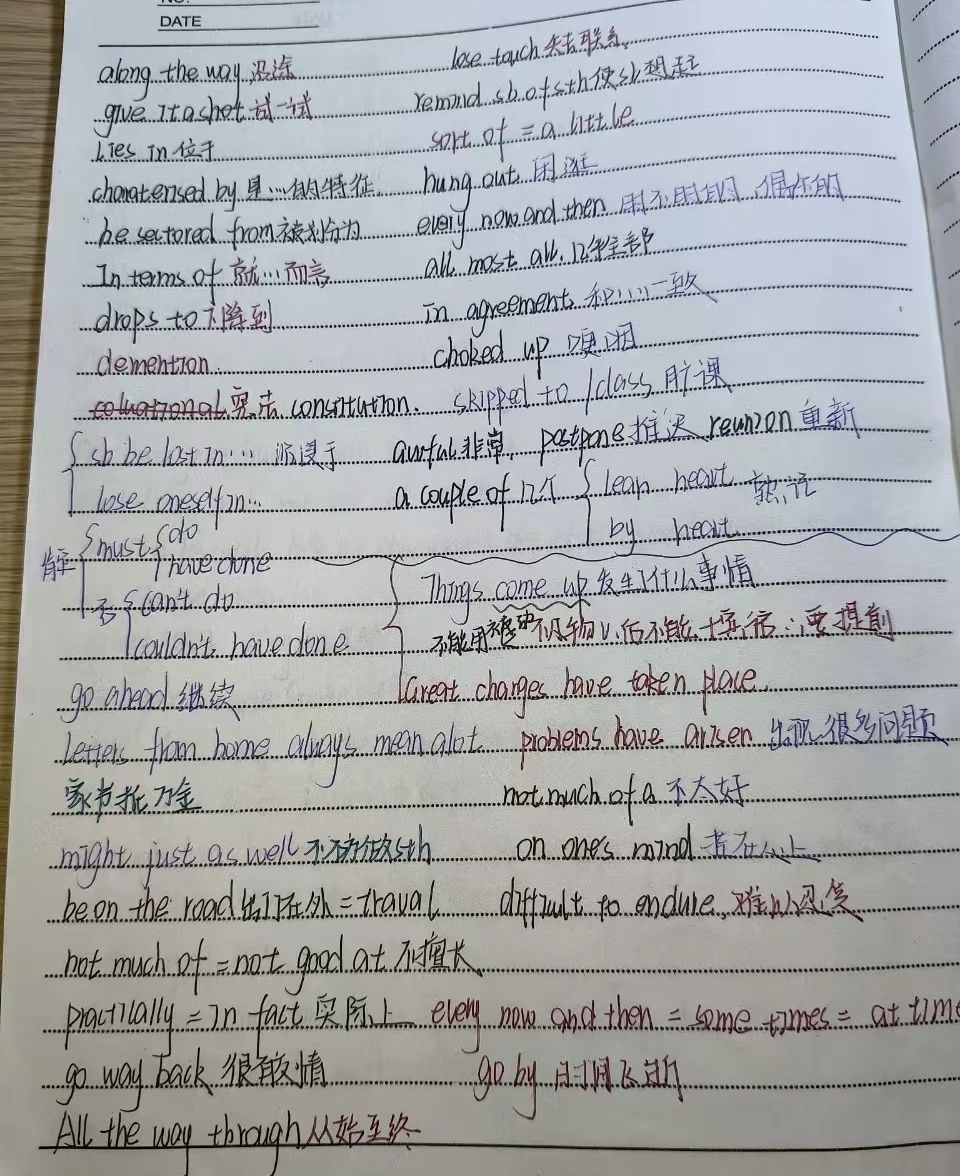 NO.
DATE
along the way 沿途 lose touch 失去联系
give it a shot 试一试 remind sb of sth 使sb想起
Lies in 位于 sort of = a little
charaterised by 是…的特征 hung out 闲逛
be sectored from 被划分为 every now and then 时不时的 偶尔的
In terms of 就…而言 all most all. 几乎全部
drops to 下降到 in agreement 和……一致
demention choked up 哽咽
宪法 constitution. skipped to / class 逃课
sb be lost in… 沉浸于 awful 非常 postpone 推迟 reunion 重新
lose oneself in… a couple of 几个 lean heart 熟记
by heart
肯定 must do
have done
否 can't do Things come up 发生了什么事情
couldn't have done 不能用被动 不及物v.后不能+宾语∴要提前
go ahead 继续 Great changes have taken place.
Letters from home always mean alot problems have arisen 出现很多问题
家书抵万金 not much of a 不太好
might just as well 不妨做sth on one's mind 挂在心上
be on the road 出门在外 = traval difficult to endure 难以忍受
not much of = not good at 不擅长
practically = in fact 实际上 every now and then = some times = at time
go way back 很有交情 go by 时间飞逝
All the way through 从始至终